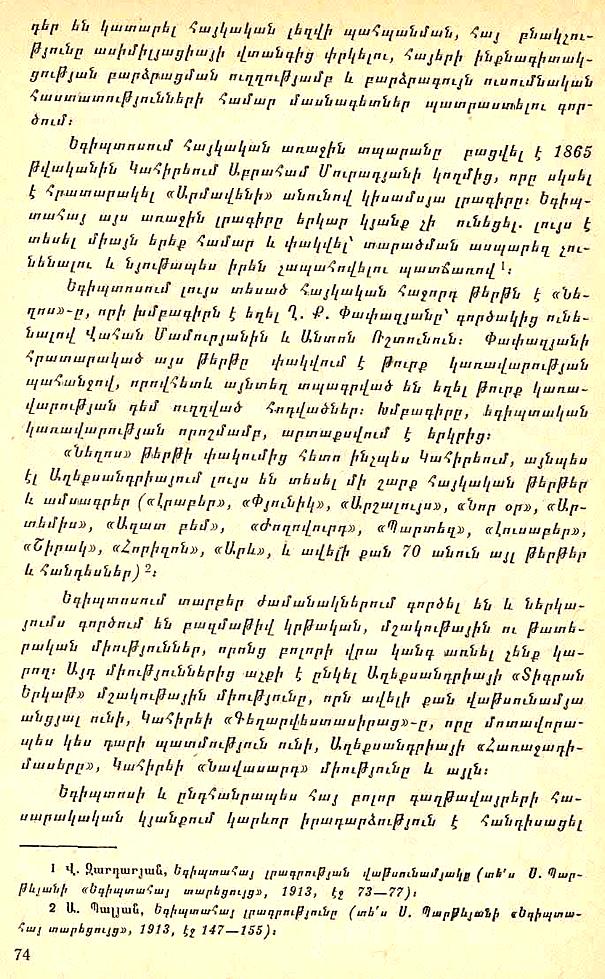 դեր են կատարել հայկական լեզվի պահպանման, հայ բնակչու-
թյունը ասիմիլյացիայի վտանգից փրկելու, հայերի ինքնագիտակ-
ցության բարձրացման ուղղությամբ և բարձրագույն ուսումնական
հաստատությունների համար մասնագետներ պատրաստելու գոր-
ծում։
Եգիպտոսում հայկական առաջին տպարանը բացվել է 1865
թվականին Կահիրեում Աբրահամ Մուրադյանի կողմից, որը սկսել
է հրատարակել «Արմավենի» անունով կիսամսյա լրագիրը։ Եգիպ-
տահայ այս առաջին լրագիրը երկար կյանք չի ունեցել. լույս է
տեսել միայն երեք համար և փակվել՝ տարածման ասպարեզ չու-
նենալու և նյութապես իրեն չապահովելու պատճառով 1։
Եգիպտոսում լույս տեսած հայկական հաջորդ թերթն է «Նե-
ղոս»-ը, որի խմբագիրն է եղել Ղ. Ք. Փափազյանը՝ գործակից ունե-
նալով Վահան Մամուրյանին և Անտոն Ռշտունուն։ Փափազյանի
հրատարակած այս թերթը փակվում է թուրք կառավարության
պահանջով, որովհետև այնտեղ տպագրված են եղել թուրք կառա-
վարության դեմ ուղղված հոդվածներ։ Խմբագիրը, եգիպտական
կառավարության որոշմամբ, արտաքսվում է երկրից։
«Նեղոս» թերթի փակումից հետո ինչպես Կահիրեում, այնպես
էլ Աղեքսանդրիայում լույս են տեսել մի շարք հայկական թերթեր
և ամսագրեր («Լրաբեր», «Փյունիկ», «Արշալույս», «Նոր օր», «Ար-
տեմիս», «Ազատ բեմ», «Ժողովուրդ», «Պարտեզ», «Լուսաբեր»,
«Շիրակ», «Հորիզոն», «Արև», և ավելի քան 70 անուն այլ թերթեր
և հանդեսներ) 2։
Եգիպտոսում տարբեր ժամանակներում գործել են և ներկա-
յումս գործում են բազմաթիվ կրթական, մշակութային ու թատե-
րական միություններ, որոնց բոլորի վրա կանգ առնել չենք կա-
րող։ Այդ միություններից աչքի է ընկել Աղեքսանդրիայի «Տիգրան
Երկաթ» մշակութային միությունը, որն ավելի քան վաթսունամյա
անցյալ ունի, Կահիրեի «Գեղարվեստասիրաց»-ը, որը մոտավորա-
պես կես դարի պատմություն ունի, Աղեքսանդրիայի «Հառաջադի-
մասերը», Կահիրեի «Նավասարդ» միությունը և այլն։
Եգիպտոսի և ընդհանրապես հայ բոլոր գաղթավայրերի հա-
սարակական կյանքում կարևոր իրադարձություն է հանդիսացել
1 Վ. Զարդարյան, Եգիպտահայ լրագրության վաթսունամյակը (տե՛ս Ս. Պար-
թևյանի «Եգիպտահայ տարեցույց», 1913, էջ 73—77)։
2 Ա. Պալյան, Եգիպտահայ լրագրությունը (տե՛ս Ս. Պարթևյանի «Եգիպտա-
հայ տարեցույց», 1913, էջ 147—155)։
74